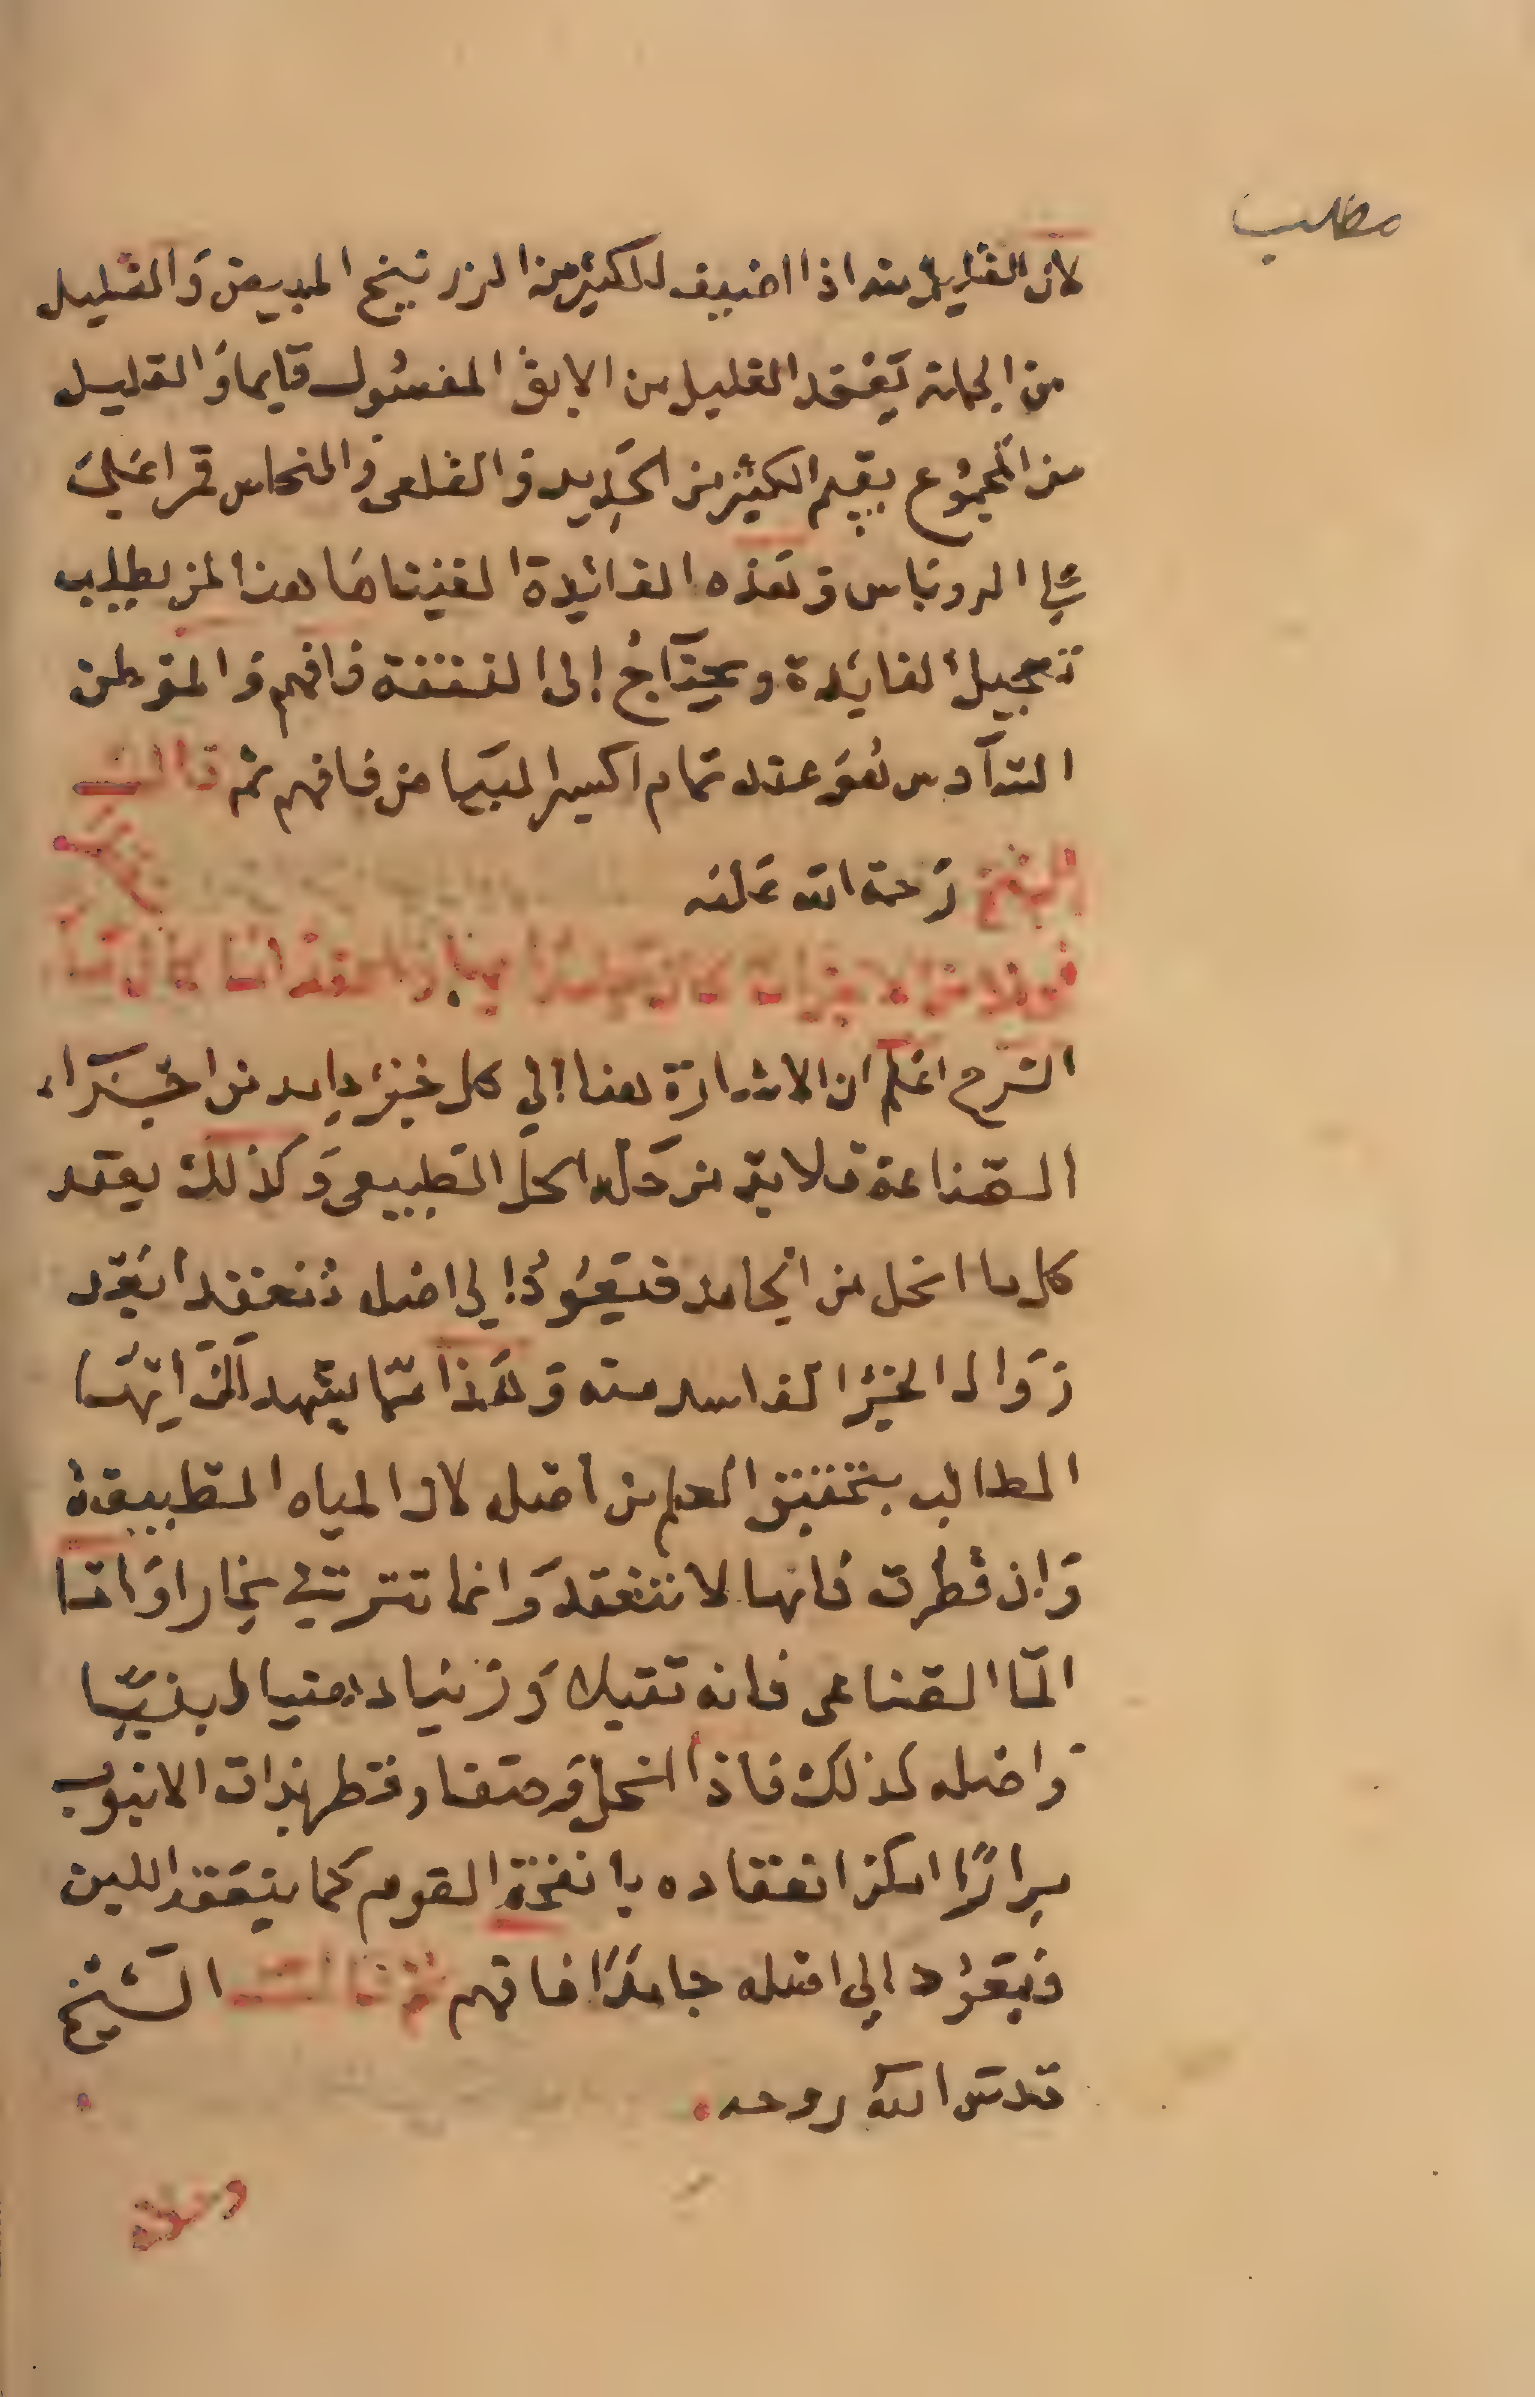 مطلب
لان القليل منه اذا اضيف للكثير من الزرنيخ المبيض وَالقليل
من الجملة يَعْقد القليل من الابق المغسُول قايما وَ القليل
من المجمُوع يقيم الكثير من الحَدِيد وَ القلعى وَالنحاس قمرا عَلىَ
الروباس وَ هَذه الفائِدة الفيتناهَا هنا لمن يطلب
تعجيل الفايَدة ويحتاجُ الى النفقة فافهم وَ الموطن
السَادس هُوَ عند تمام اكسير البَياض فافهم ثم قال
الشيخ رَحمة الله عَليه
الشرح اعْلم ان الاشارة هنا الي كل جُزء جامد من اجْزَاء
الصّناعة فلا بدّ من حَله الحلَّ الطَبيعى وَكذلك يعقد
كل ما انحل من الجامد فيَعُودُ الي اصْله فينعقد بَعْد
زوَال الجُزْء الفاسد منه وَ هَذا ممّا يشهد لكَ ايّهَا
الطالب بتحقيق العلم من اصله لان المياه الطبيعية
وَان قُطّرت فانها لا تنعقد وَ انما تترقي بخارا وَامّا
المَا الصّناعى فانه ثقيل وَزنيا
وَ اصْله كذلك فاذا انحل وَصفا وقطر بذات الانبوب
مِرارًا امكن انعقاده بانفحة القوم كما ينعَقد اللبن
فيَعُود الي اصله جامدًا فافهم ثم قال الشيخ
قدسَ اللهُ روحه